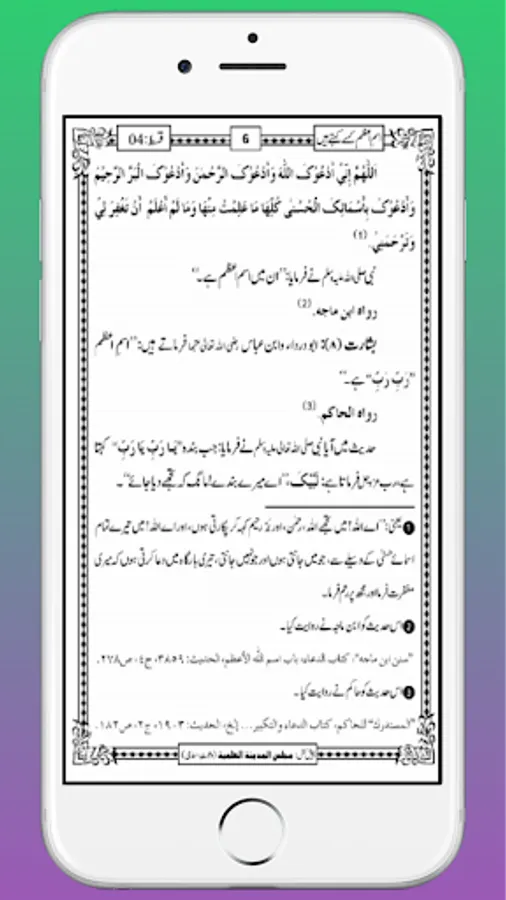 اسم اعظم کسے کہتے ہیں
6
قسط:04
اَللّٰهُمَّ اِنِّيْ اَدْعُوْكَ اللّٰهَ وَاَدْعُوْكَ الرَّحْمٰنَ وَاَدْعُوْكَ الْبَرَّ الرَّحِيْمَ
وَاَدْعُوْكَ بِاَسْمَائِكَ الْحُسْنٰى كُلِّهَا مَا عَلِمْتُ مِنْهَا وَمَا لَمْ اَعْلَمْ اَنْ تَغْفِرَ لِيْ
وَتَرْحَمَنِيْ. (1)
نبی صلی اللہ علیہ وسلم نے فرمایا: ”ان میں اسم اعظم ہے۔“
رواه ابن ماجه. (2)
بشارت (۸): ابو درداء وابن عباس رضی اللہ تعالی عنہما فرماتے ہیں: ”اسم اعظم
”رَبِّ رَبِّ“ ہے۔“
رواه الحاكم. (3)
حدیث میں آیا نبی صلی اللہ تعالی علیہ وسلم نے فرمایا: جب بندہ ”يَا رَبِّ يَا رَبِّ“ کہتا
ہے، رب عزوجل فرماتا ہے: لَبَّيْكَ، ”اے میرے بندے! مانگ کہ تجھے دیا جائے“۔
❶ یعنی: ”اے اللہ! میں تجھے اللہ، رحمٰن، اور بَرّ رحیم کہہ کر پکارتی ہوں، اور اے اللہ! میں تیرے تمام
اسمائے حسنٰی کے وسیلے سے، جو میں جانتی ہوں اور جو نہیں جانتی، تیری بارگاہ میں دعا کرتی ہوں کہ میری
مغفرت فرما اور مجھ پر رحم فرما۔
❷ اس حدیث کو ابن ماجہ نے روایت کیا۔
”سنن ابن ماجه“، كتاب الدعاء، باب اسم الله الأعظم، الحديث: ٣٨٥٩، ج٤، ص٢٧٨.
❸ اس حدیث کو حاکم نے روایت کیا۔
”المستدرك“ للحاكم، كتاب الدعاء والتكبير... إلخ، الحديث: ١٩٠٣، ج٢، ص١٨٢.
مجلس المدينة العلمية